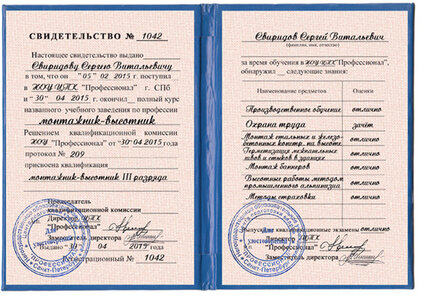 СВИДЕТЕЛЬСТВО № 1042
Настоящее свидетельство выдано
Свиридову Сергею Витальевичу
в том, что он "05" 02 2015 г. поступил
в ЧОУ ЦПК "Профессионал" г. СПб
и "30" 04 2015 г. окончил полный курс
названного учебного заведения по профессии
монтажник-высотник
Решением квалификационной комиссии
ЧОУ "Профессионал" от 30-04 2015 года
протокол № 209
присвоена квалификация
монтажник-высотник III разряда
Председатель
квалификационной комиссии
Директор ЦПК
"Профессионал"
Заместитель директора
30 04 2015 г.
Регистрационный № 1042
Свиридов Сергей Витальевич
(фамилия, имя, отчество)
за время обучения в ЧОУ ЦПК "Профессионал",
обнаружил следующие знания:
Наименование предметов Оценки
Производственное обучение отлично
Охрана труда зачёт
Монтаж стальных и железо-
бетонных констр. на высоте отлично
Герметизация межпанельных
швов и стыков в зданиях отлично
Монтаж баннеров отлично
Высотные работы методом
промышленного альпинизма отлично
Методы страховки отлично
Выпускные квалификационные экзамены отлично
Директор ЦПК
"Профессионал"
Заместитель директора